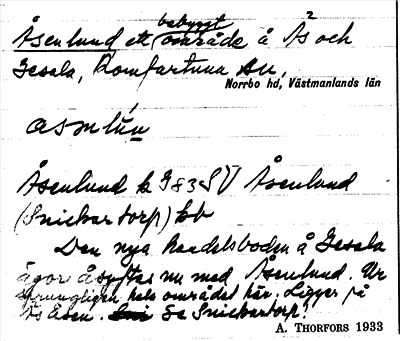 Åsenlund ett bebyggt område å Ås och
Gesala, Romfartuna sn,
Norrbo hd, Västmanlands län
åsnlún
Åsenlund k 983 SV Åsenlund
(Snickartorp) kb
Den nya handelsboden å Gesala
ägor åsyftas nu med Åsenlund. Ur
sprungligen hela området här. Ligger på
Åsen. Se Snickartorp!
A. THORFORS 1933